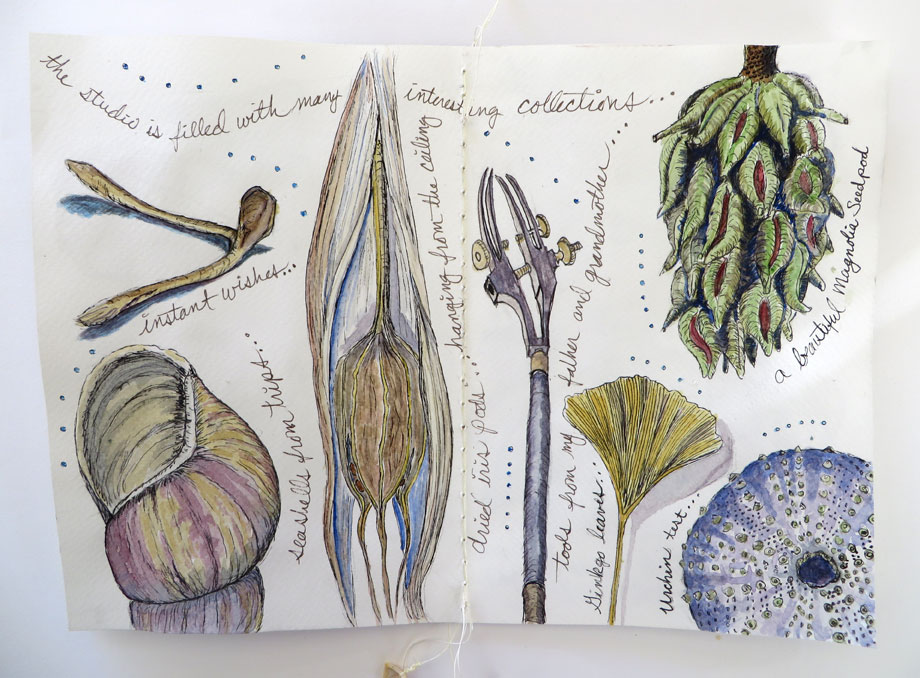 the studio is filled with many interesting collections...
instant wishes...
seashells from trips...
dried iris pods... hanging from the ceiling
tools from my father and grandmother...
Ginkgo leaves...
Urchin test...
a beautiful Magnolia Seedpod